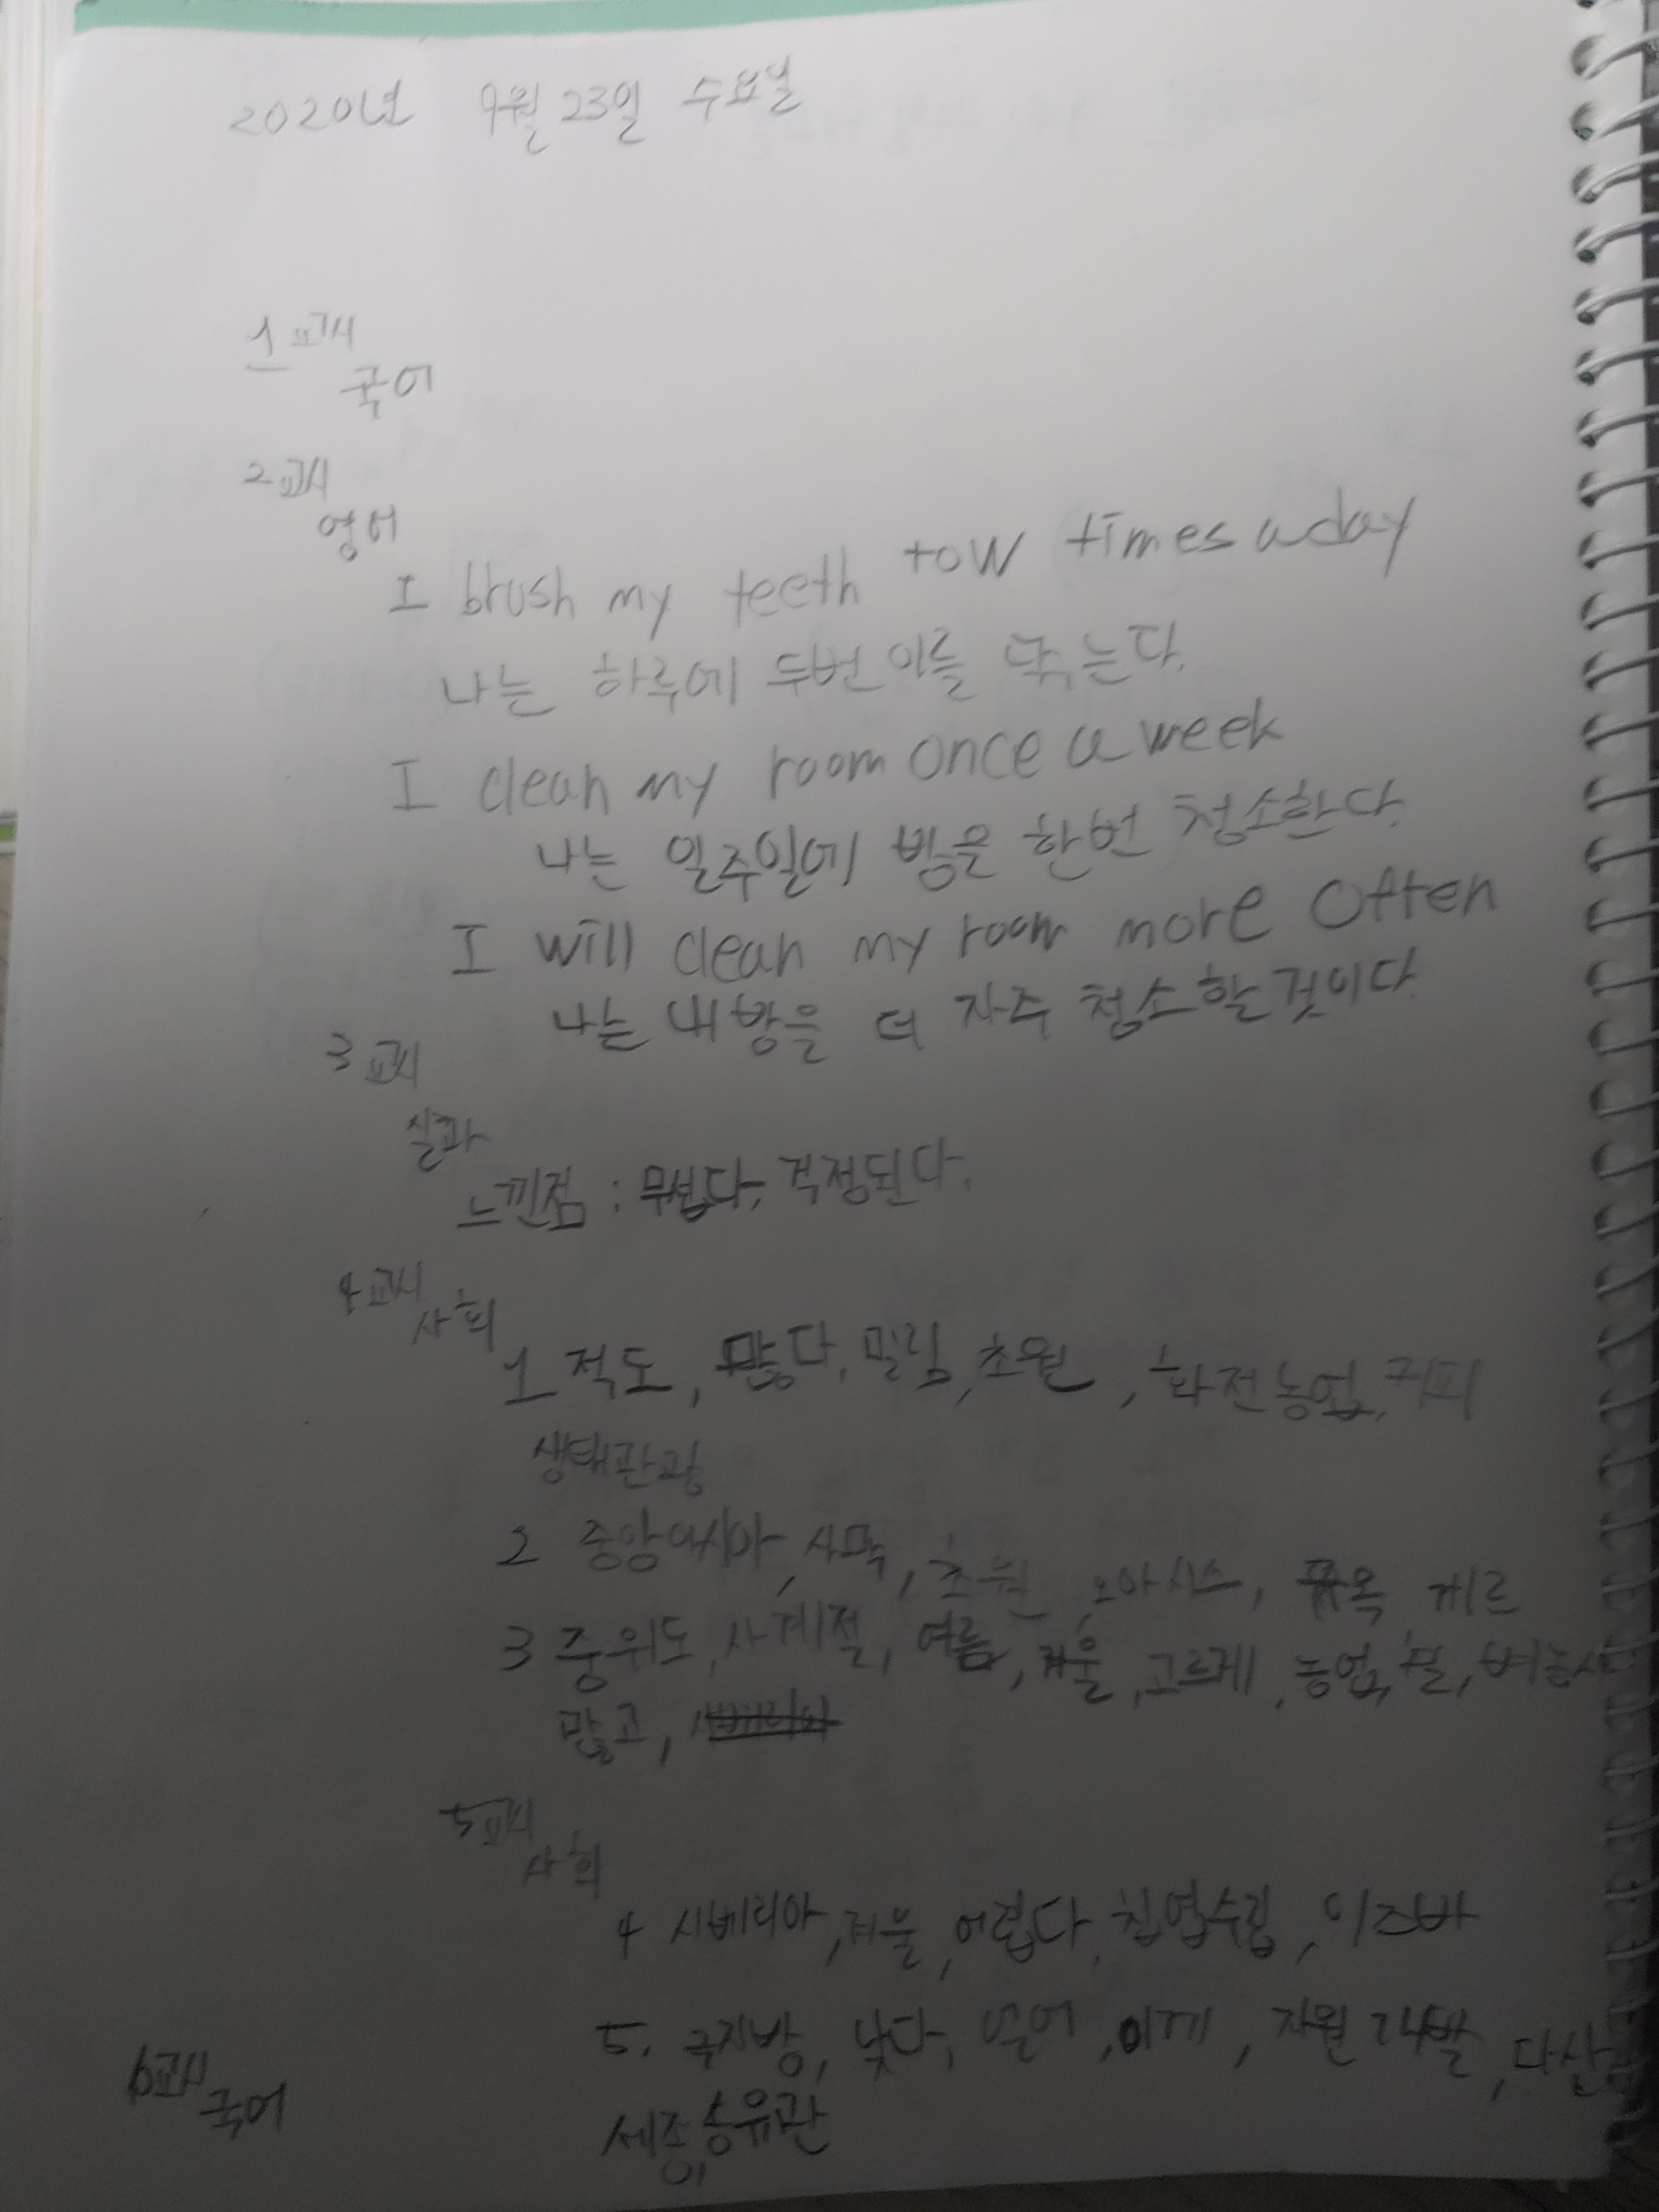 2020년 9월 23일 수요일
1교시
국어
2교시
영어
I brush my teeth tow times a day
나는 하루에 두번 이를 닦는다.
I clean my room once a week
나는 일주일에 방을 한번 청소한다.
I will clean my room more often
나는 내 방을 더 자주 청소할 것이다.
3교시
실과
느낀점 : 무섭다, 걱정된다.
4교시
사회
1 적도, 많다, 밀림, 초원, 화전농업, 커피
생태관광
2 중앙아시아, 사막, 초원, 오아시스, 게르
3 중위도, 사계절, 여름, 겨울, 고르게, 농업, 벼농사
많고,
5교시
사회
4 시베리아, 겨울, 어렵다, 침엽수림, 이즈바
5. 극지방, 낮다, 얼어, 이끼, 자원개발, 다산
세종, 송유관
6교시
국어